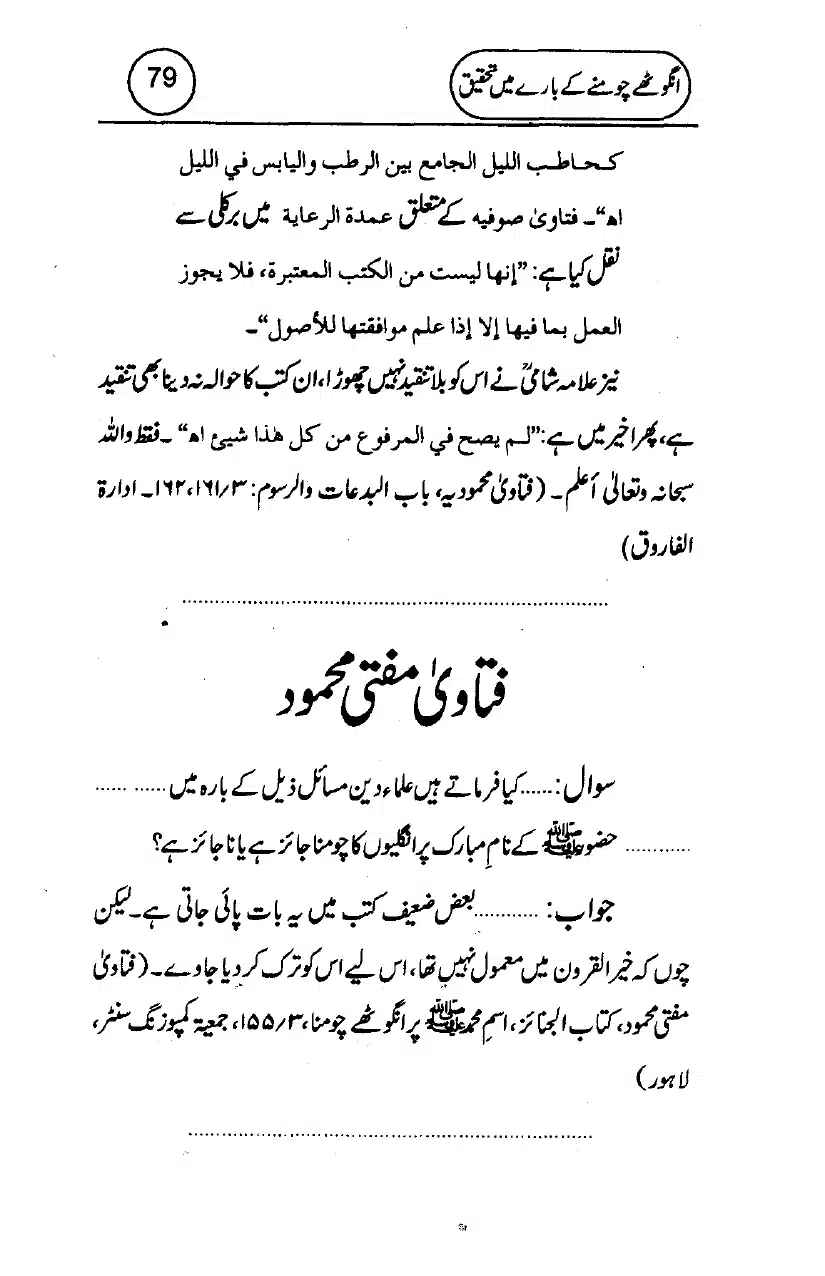 انگوٹھے چومنے کے بارے میں تحقیق
79
کحاطب اللیل الجامع بین الرطب والیابس في اللیل
اھ“۔ فتاویٰ صوفیه کے متعلق عمدة الرعایة میں برکلی سے
نقل کیا ہے: ”إنها لیست من الکتب المعتبرة، فلا یجوز
العمل بما فیها إلا إذا علم موافقتها للأصول“۔
نیز علامہ شامیؒ نے اس کو بلا تنقید نہیں چھوڑا، ان کتب کا حوالہ نہ دینا بھی تنقید
ہے، پھر اخیر میں ہے: ”لم یصح في المرفوع من کل هذا شیئ اھ“۔ فقط واللہ
سبحانہ وتعالیٰ أعلم۔ (فتاویٰ محمودیہ، باب البدعات والرسوم: ۳/۱۶۱، ۱۶۲۔ ادارۃ
الفاروق)
فتاویٰ مفتی محمود
سوال:...... کیا فرماتے ہیں علماء دین مسائل ذیل کے بارہ میں ...... ......
............ حضور ﷺ کے نامِ مبارک پر انگلیوں کا چومنا جائز ہے یا نا جائز ہے؟
جواب: ............ بعض ضعیف کتب میں یہ بات پائی جاتی ہے۔ لیکن
چوں کہ خیر القرون میں معمول نہیں تھا، اس لیے اس کو ترک کر دیا جاوے۔ (فتاویٰ
مفتی محمود، کتاب الجنائز، اسمِ محمد ﷺ پر انگوٹھے چومنا، ۳/۱۵۵، جمعیۃ کمپوزنگ سنٹر،
لاہور)